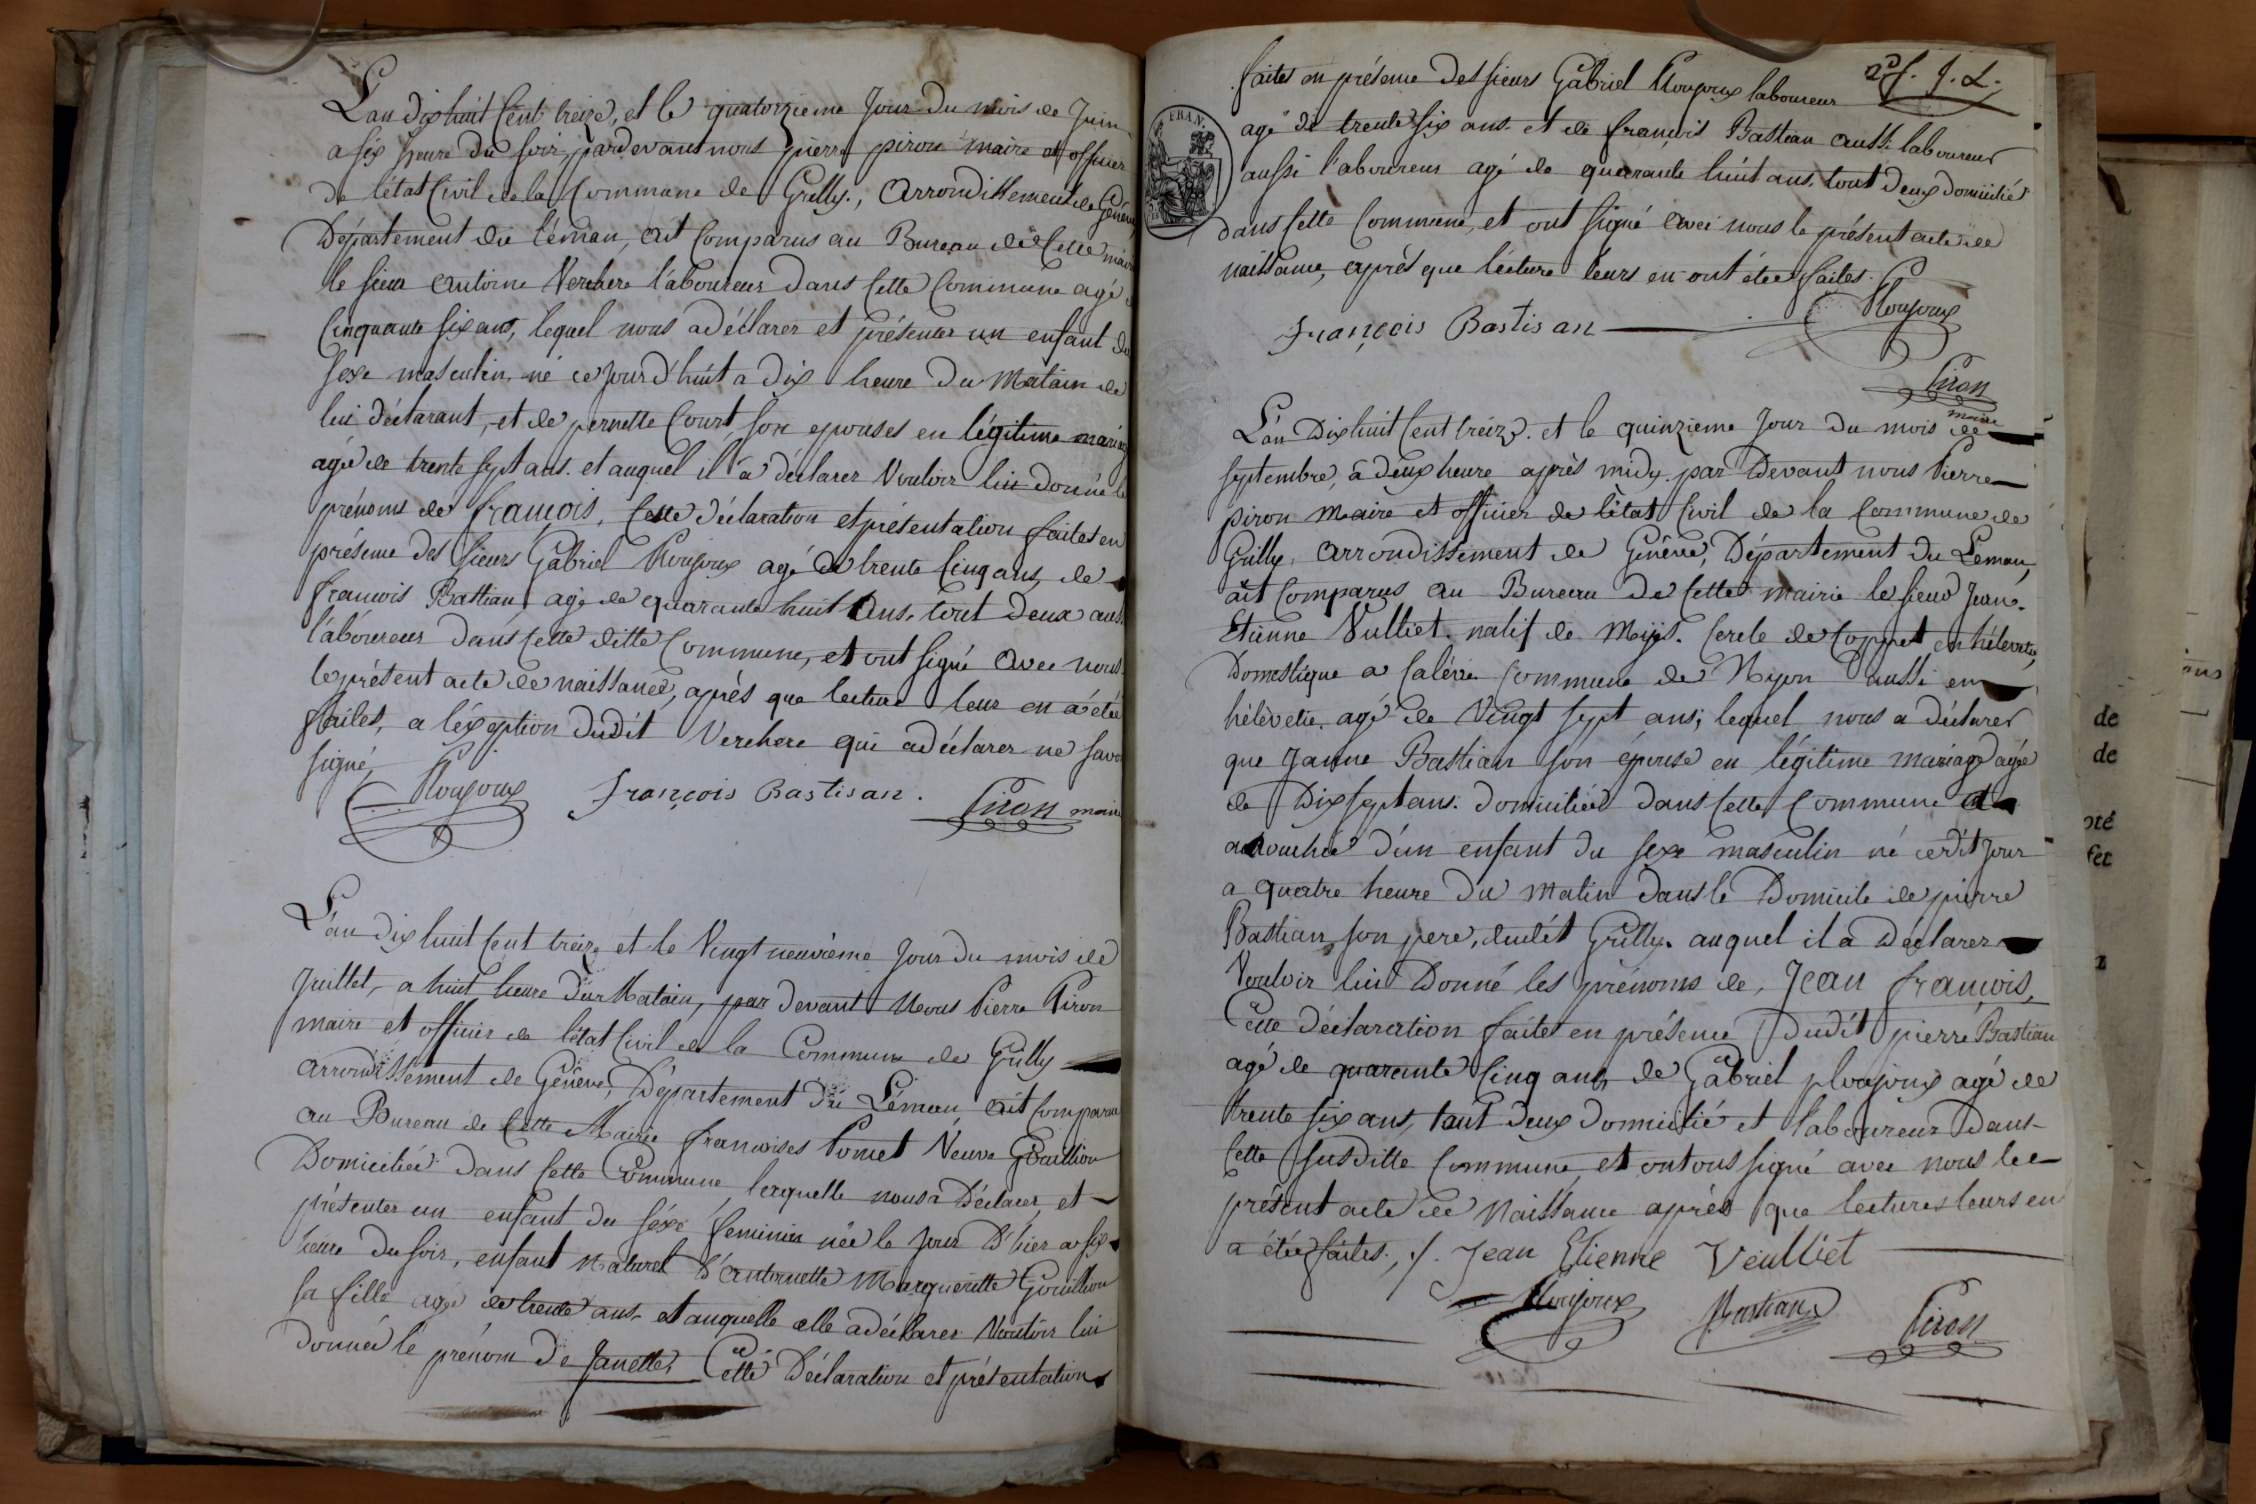 L'an dix huit Cent treize, et le quatorzieme Jour du mois de Juin
a six heure du soir, pardevant nous pierre piron maire et officier
de l'état Civil de la Commune de Grilly, Arrondissement de Genève
Département du léman, ait Comparus au Bureau de Cette mairie
le sieur antoine Verchere laboureur dans Cette Commune agé
Cinquante six ans, lequel nous a déclarer et présenter un enfant du
sexe masculin, né ce Jourd'huit a dix heure du Matain de
lui déclarant, et de pernette Court, son epouses en légitime mariage
agée de trente sept ans. et auquel il a déclarer Vouloir lui donné le
prénoms de françois, Cette déclaration et présentation faites en
présence des sieurs Gabriel Ploujoux agé de trente Cinq ans, de
francois Bastian, agé de quarante huit Ans, tout deux aussi
laboureur dans Cette ditte Commune, et ont signé avec nous
le présent acte de naissance, après que lecture leur en a étée
faites, a l'éxception dudit Verchere qui a déclarer ne savoir
signé,
Ploujoux François Bastisan. Piron maire
L'an dix huit Cent treize et le Vingt neuvième Jour du mois de
Juillet, a huit heure du Matain, par devant Nous Pierre Piron
maire et officier de l'état Civil de la Commune de Grilly
arrondissement de Gèneve, Département du Léman, ait Comparu
au Bureau de Cette Mairie francoises Pomet Veuve Gouillion
Domiciliée dans Cette Commune, laquelle nous a Déclarer, et
présenter un enfant du séxe feminin née le Jour D'hier a six
heure du soir, enfant Naturel d'Antoinette Marguerite Gouillion
sa fille agée de trente ans. et auquelle elle a déclarer Vouloir lui
donnée le prénom De Janette, Cette Déclaration et présentation
faites en présence des sieurs Gabriel Ploujoux laboureur
agé de trente six ans. et de françois Bastian aussi laboureur
aussi l'aboureur agé de quarante huit ans, tout deux domicilié
dans Cette Commune, et ont signé avec nous le présent acte de
naissance, après que lécture leurs en ont étée faites.
François Bastisan Ploujoux
Piron
maire
FRAN.
L'an Dix huit Cent treize. et le quinzieme Jour du mois de
septembre, à deux heure après midy. par Devant nous Pierre
piron Maire et officier de l'état Civil de la Commune de
Grilly, Arrondissement de Genève, Département du Léman,
ait Comparus au Bureau De Cette mairie le sieur Jean-
Etienne Vulliet. natif de Cercle de Coppet en hélevetie,
Domestique a Calève Commune de Nyon aussi en
hélevetie. agé de Vingt sept ans; lequel nous a déclarer
que Janne Bastian son épouse en légitime mariage agée
de Dix sept ans. domiciliée dans Cette Commune
accouchée d'un enfant du sexe masculin né cedit Jour
a quatre heure du Matin dans le Domicile de pierre
Bastian son pere, dudit Grilly. auquel il a Déclarer
Vouloir lui Donné les prénoms de, Jean françois,
Cette déclaration faite en présence dudit pierre Bastian
agé de quarante Cinq ans, de Gabriel ploujoux agé de
trente six ans, tout deux domicilié et laboureur dans
Cette susditte Commune, et ont tous signé avec nous le
présent acte de Naissance après que lectures leurs en
a étée faites. Jean Etienne Veulliet
Ploujoux Bastian Piron
de
de